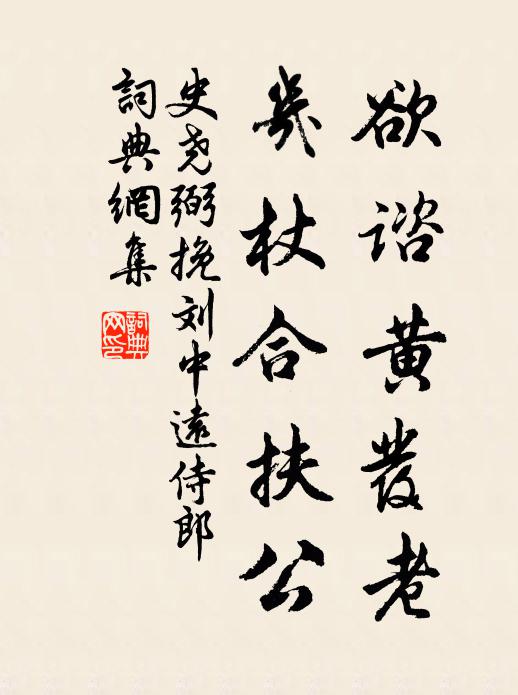 欲諮黄發老
幾杖合扶公
史尧弼挽刘中遠侍郎
詞典網集
詞典
网印